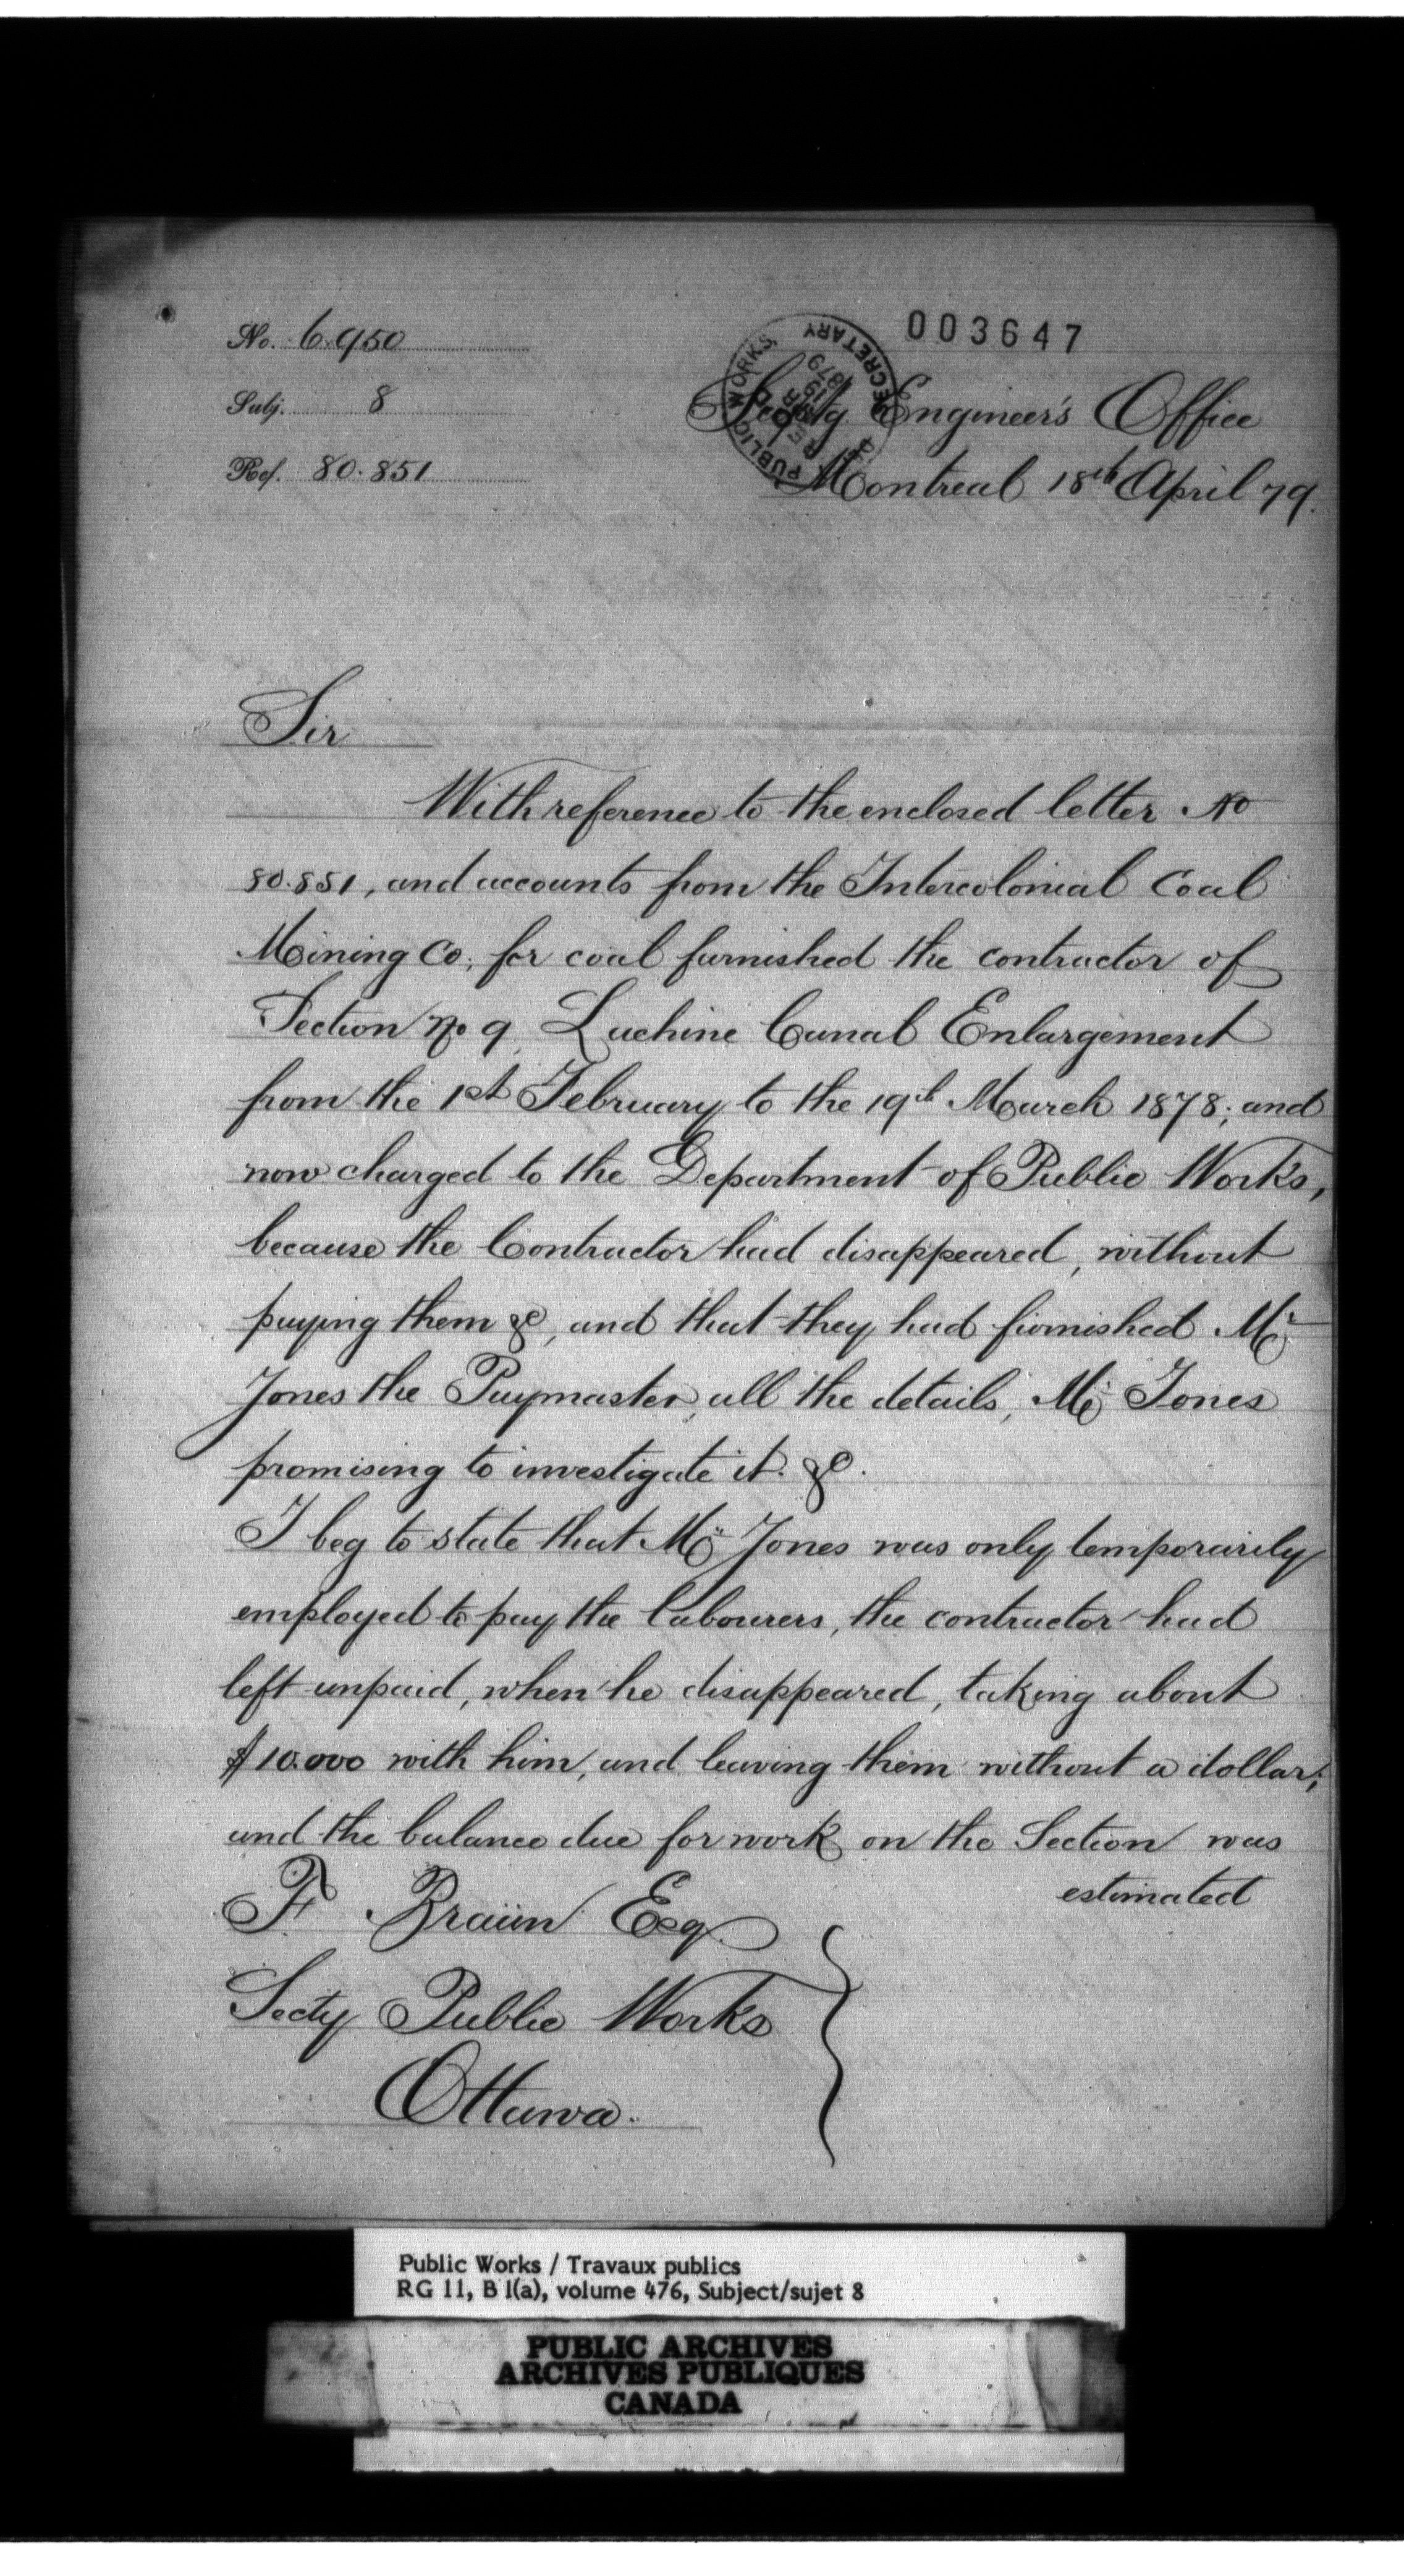 No. 6.950
Subj. 8
Ref. 80.851
003647
PUBLIC WORKS SECRETARY
APR 19 1879
Suptg Engineer's Office
Montreal 18th April 79.
Sir
With reference to the enclosed letter No
80.851, and accounts from the Intercolonial Coal
Mining Co; for coal furnished the contractor of
Section No 9, Lachine Canal Enlargement
from the 1st February to the 19th March 1878; and
now charged to the Department of Public Works,
because the Contractor had disappeared, without
paying them &c, and that they had furnished Mr
Jones the Paymaster, all the details, Mr Jones
promising to investigate it. &c.
I beg to state that Mr Jones was only temporarily
employed to pay the labourers, the contractor had
left unpaid, when he disappeared, taking about
$10.000 with him, and leaving them without a dollar;
and the balance due for work on the Section was
estimated
F Braün Esq
Secty Public Works
Ottawa.
Public Works / Travaux publics
RG 11, B 1(a), volume 476, Subject/sujet 8
PUBLIC ARCHIVES
ARCHIVES PUBLIQUES
CANADA